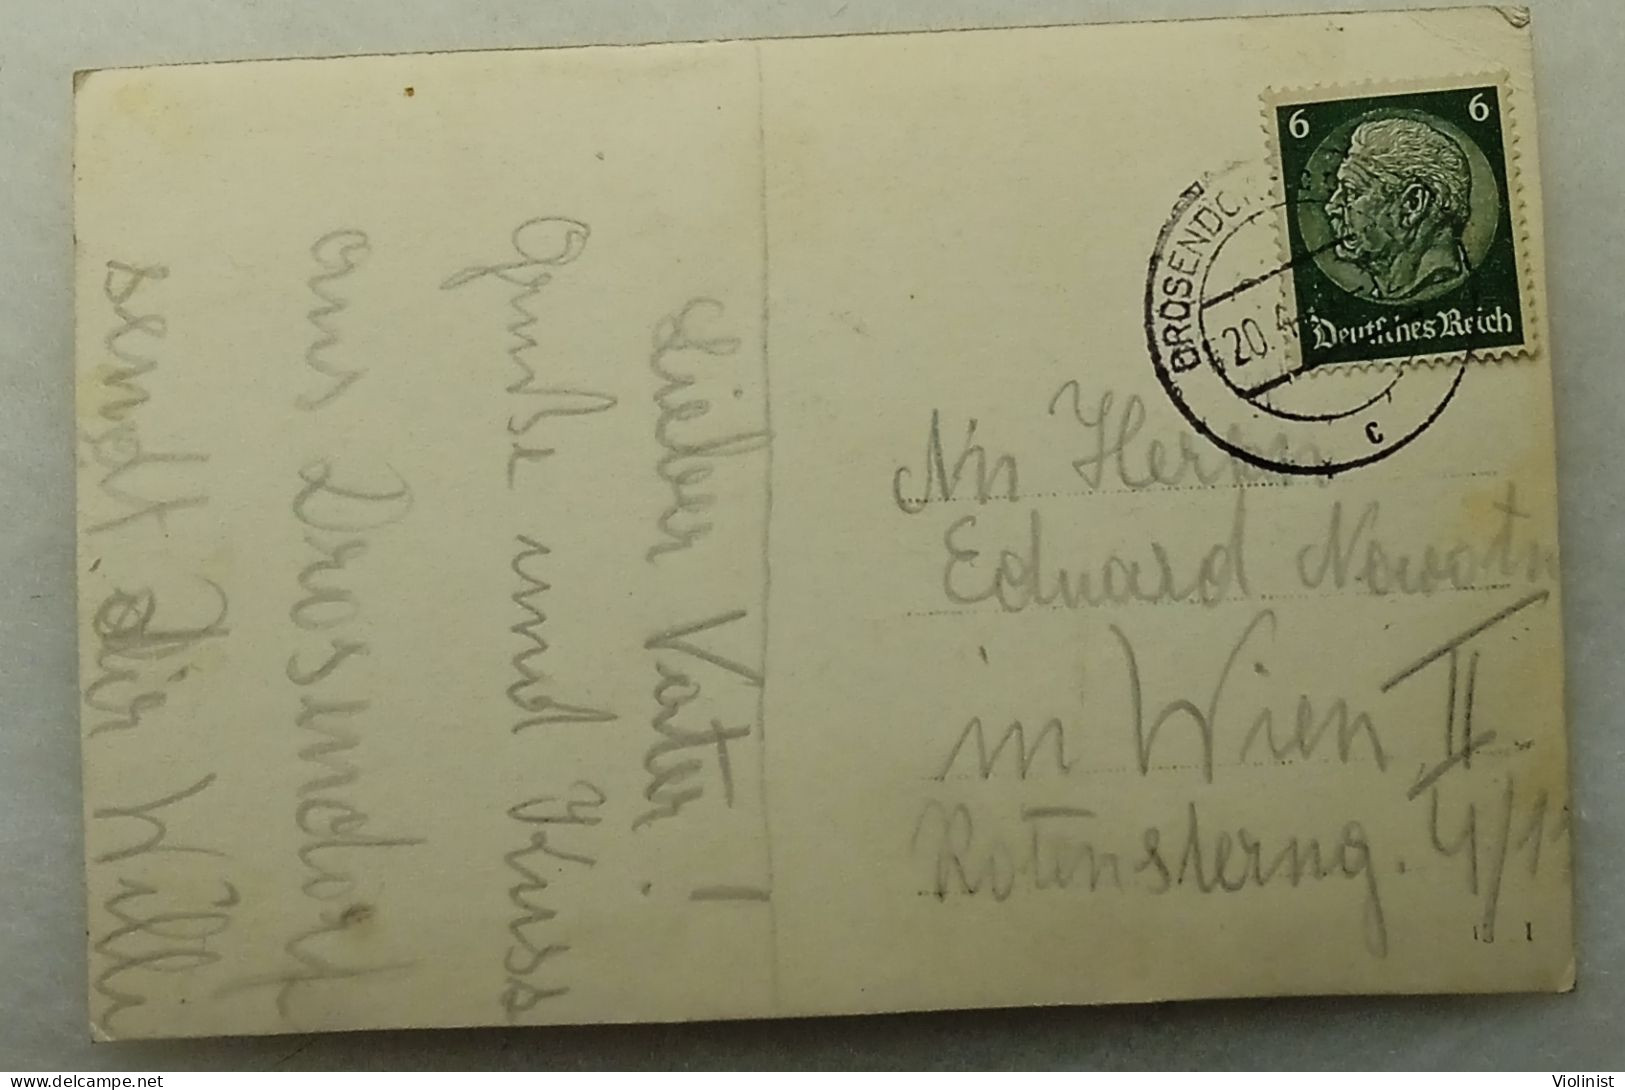 Lieber Vater!
Grüße und Kuss
aus Drosendorf
sendt Dir Willi
6 6
Deutsches Reich
DROSENDO
20. 4.
c
An Herrn
Eduard Nowotn
in Wien II.
Rotensterng. 4/11
delcampe.net
Violinist